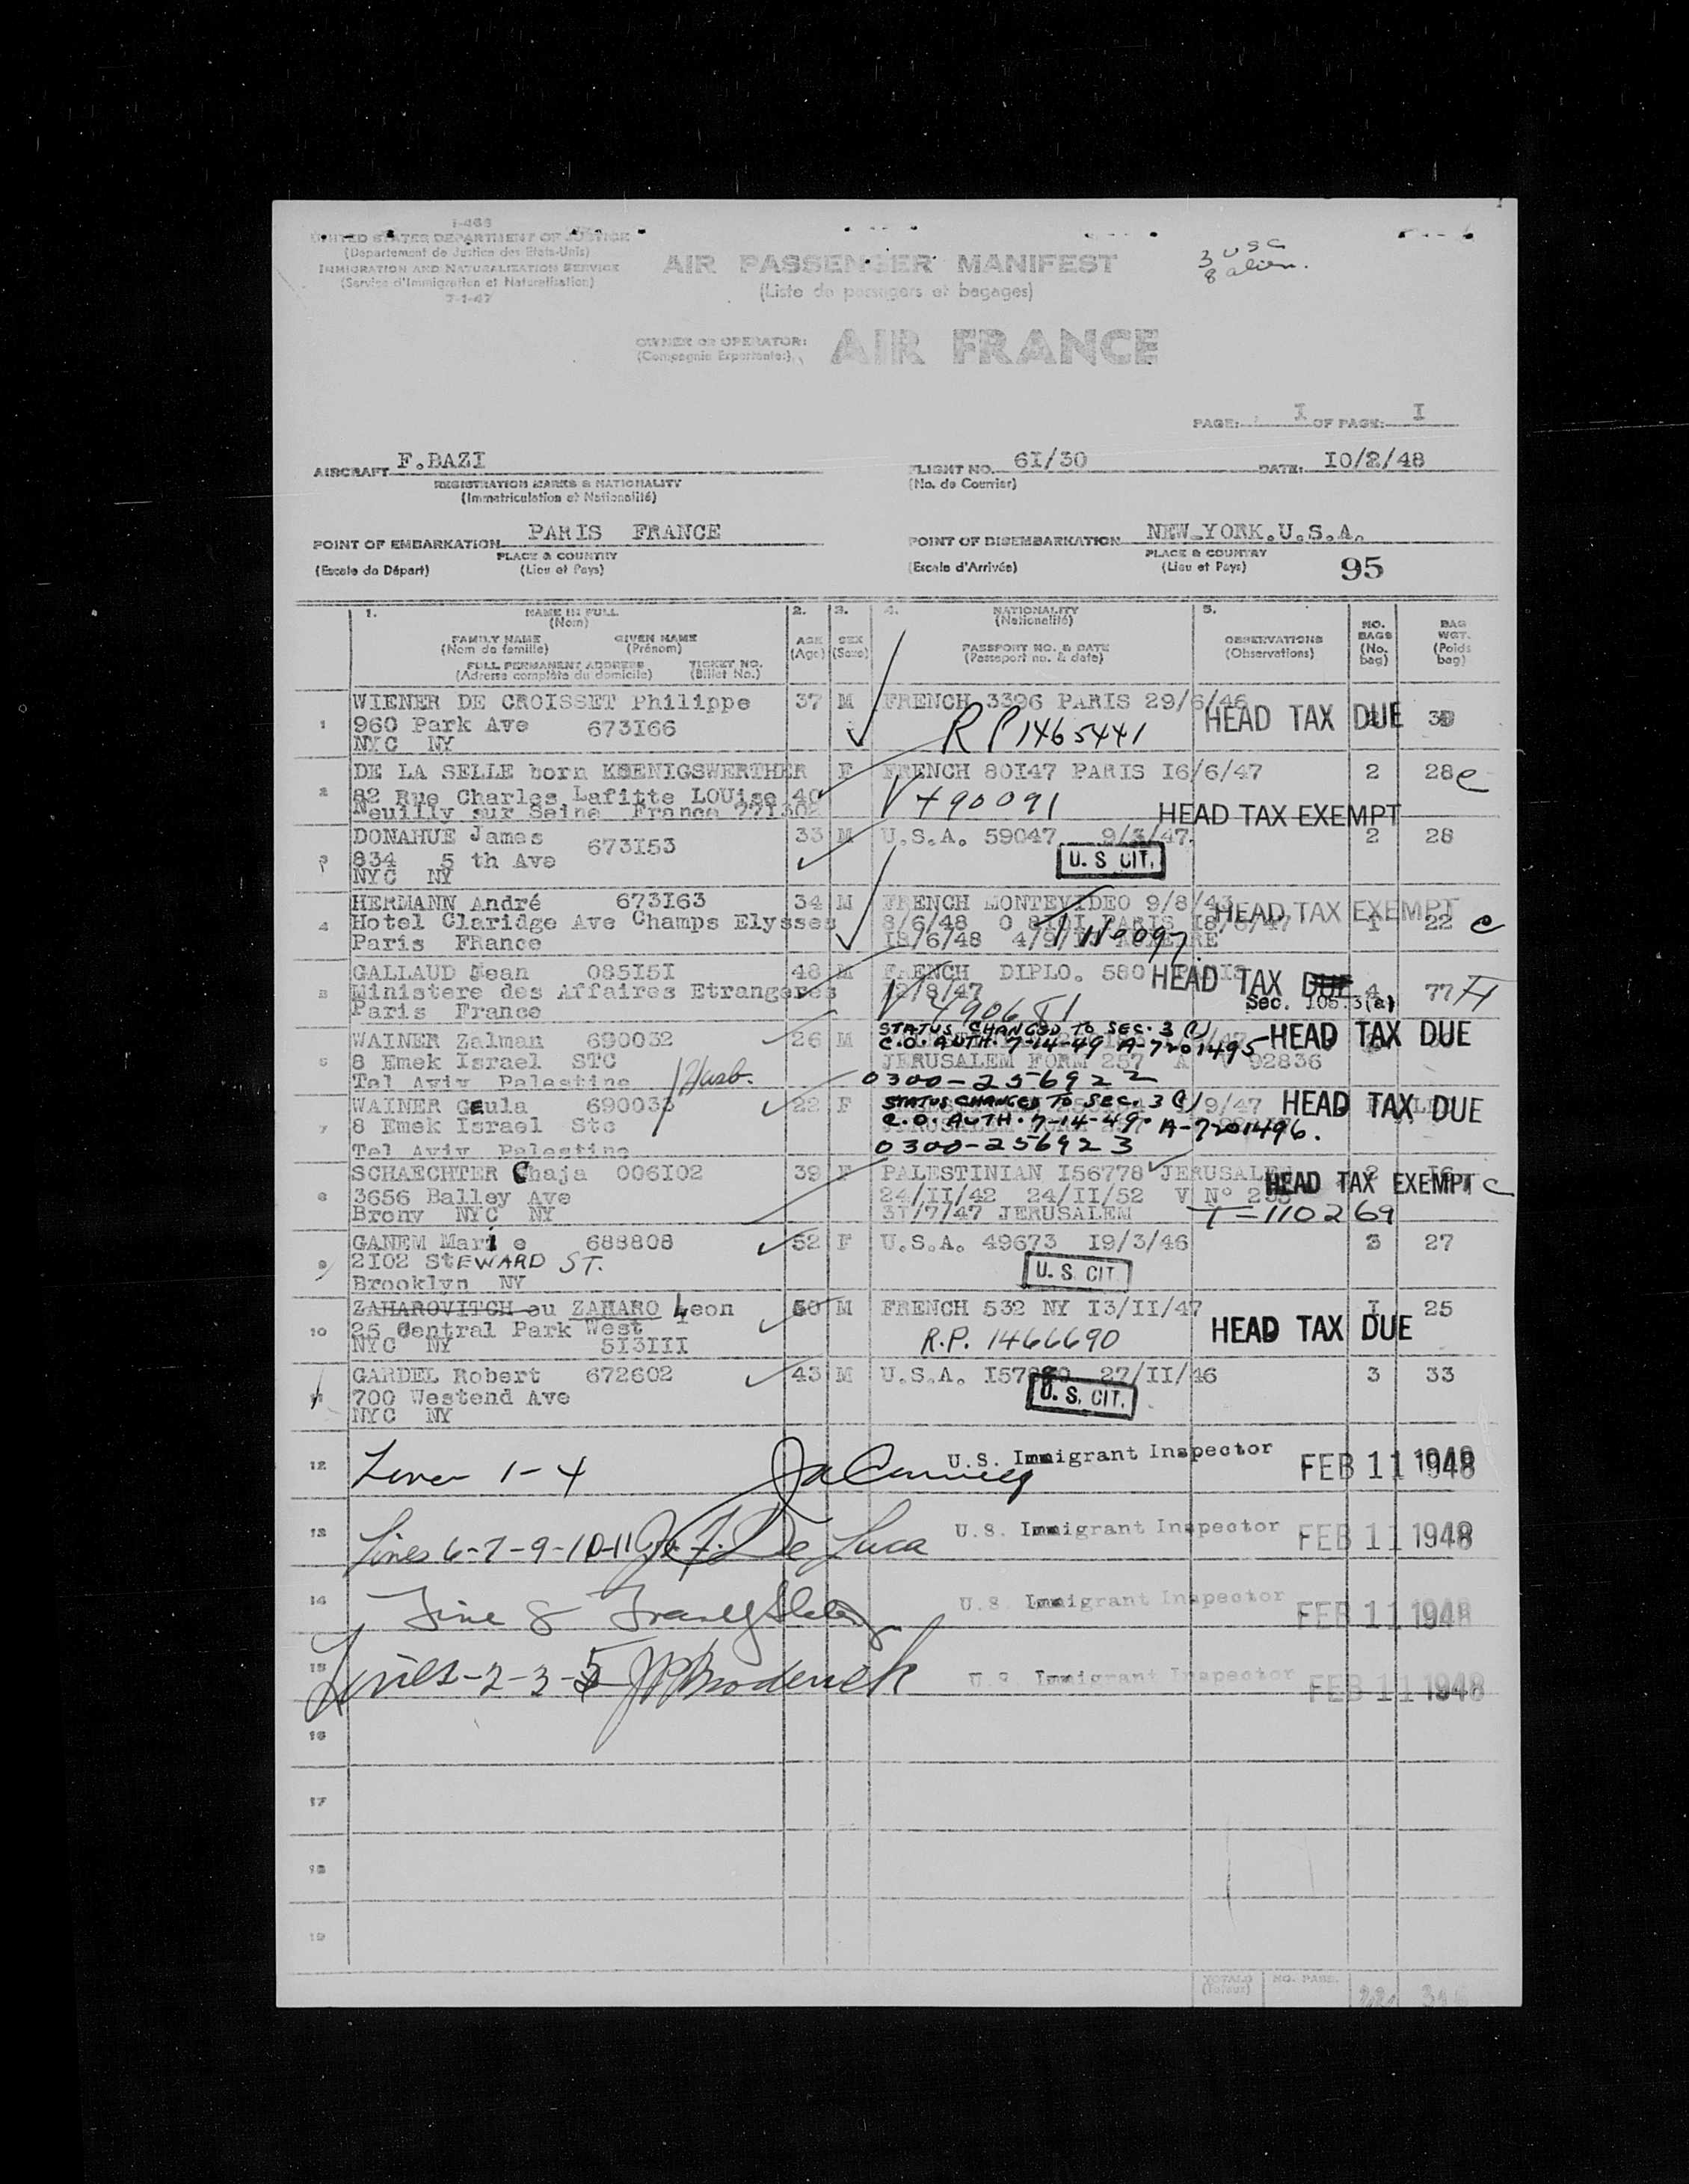 I-466
UNITED STATES DEPARTMENT OF JUSTICE
(Département de Justice des Etats-Unis)
IMMIGRATION AND NATURALIZATION SERVICE
(Service d'Immigration et Naturalisation)
7-1-47
AIR PASSENGER MANIFEST
(Liste de passagers et bagages)
3 USC
8 alien.
OWNER OR OPERATOR:
(Compagnie Exportante:)
AIR FRANCE
PAGE: I OF PAGE: I
AIRCRAFT F.BAZI
REGISTRATION MARKS & NATIONALITY
(Immatriculation et Nationalité)
FLIGHT NO. 6I/30
(No. de Courrier)
DATE: IO/2/48
POINT OF EMBARKATION PARIS FRANCE
PLACE & COUNTRY
(Escale de Départ) (Lieu et Pays)
POINT OF DISEMBARKATION NEW YORK.U.S.A.
PLACE & COUNTRY
(Escale d'Arrivée) (Lieu et Pays)
95
1. NAME IN FULL
(Nom)
FAMILY NAME GIVEN NAME
(Nom de famille) (Prénom)
FULL PERMANENT ADDRESS TICKET NO.
(Adresse complète du domicile) (Billet No.)
2. AGE
(Age)
3. SEX
(Sexe)
4. NATIONALITY
(Nationalité)
PASSPORT NO. & DATE
(Passeport no. & date)
5. OBSERVATIONS
(Observations)
NO. BAGS
(No. bag)
BAG WGT.
(Poids bag)
1 WIENER DE CROISSET Philippe 37 M FRENCH 3396 PARIS 29/6/46
960 Park Ave 673I66 RP1465441 HEAD TAX DUE
NYC NY
2 DE LA SELLE born KOENIGSWERTHER F FRENCH 80I47 PARIS I6/6/47 2 28 c
82 Rue Charles Lafitte LOUise 40 V490091 HEAD TAX EXEMPT
Neuilly sur Seine France 77I302
3 DONAHUE James 673I53 33 M U.S.A. 59047 9/3/47. 2 28
834 5 th Ave U. S CIT.
NYC NY
4 HERMANN André 673I63 34 M FRENCH MONTEVIDEO 9/8/43 HEAD TAX EXEMPT
Hotel Claridge Ave Champs Elysses 8/6/48 PARIS I8/6/47 1 22 c
Paris FRance I8/6/48
5 GALLAUD Jean 085I5I 48 M FRENCH DIPLO. 580 PARIS HEAD TAX DUE
Ministere des Affaires Etrangeres I2/8/47 Sec. 105.3(a) 4 77 H
Paris France V 490681
6 WAINER Zalman 690032 26 M STATUS CHANGED TO SEC. 3 ( ) HEAD TAX DUE
C.O. AUTH. 7-14-49 A-7201495
8 Emek Israel STC JERUSALEM FORM 257 A V 92836
Tel Aviv Palestine Husb. 0300-256922
7 WAINER GEula 690033 22 F STATUS CHANGED TO SEC. 3 ( ) 9/47 HEAD TAX DUE
8 Emek Israel Stc C.O. AUTH. 7-14-49. A-7201496.
Tel Aviv Palestine 0300-256923
8 SCHAECHTER Chaja 006I02 39 F PALESTINIAN I56778 JERUSALEM 2 I6
3656 Balley Ave 24/II/42 24/II/52 V N° HEAD TAX EXEMPT c
Brony NYC NY 3I/7/47 JERUSALEM T-110269
9 GANEM Marie 688808 52 F U.S.A. 49673 I9/3/46 3 27
2I02 StEWARD ST. U. S. CIT
Brooklyn NY
10 ZAHAROVITCH ou ZAHARO Leon 50 M FRENCH 532 NY I3/II/47 I 25
25 Central Park West R.P. 1466690 HEAD TAX DUE
NYC NY 5I3III
11 GARDEL Robert 672602 43 M U.S.A. 27/II/46 3 33
700 Westend Ave U. S. CIT.
NYC NY
12 1-4 U.S. Immigrant Inspector FEB 11 1948
13 Lines 6-7-9-10-11 De Luca U.S. Immigrant Inspector FEB 11 1948
14 Line 8 U.S. Immigrant Inspector FEB 11 1948
15 Lines-2-3-5 Broderick U.S. Immigrant Inspector FEB 11 1948
16
17
18
19
TOTALS
(Totaux)
NO. PASS.